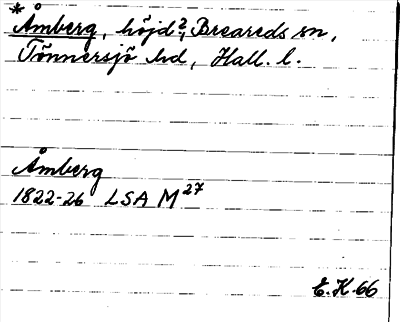 * Åmberg, höjd?, Breareds sn,
Tönnersjö hd, Hall. l.
Åmberg
1822-26 LSA M 27
E.K. 66